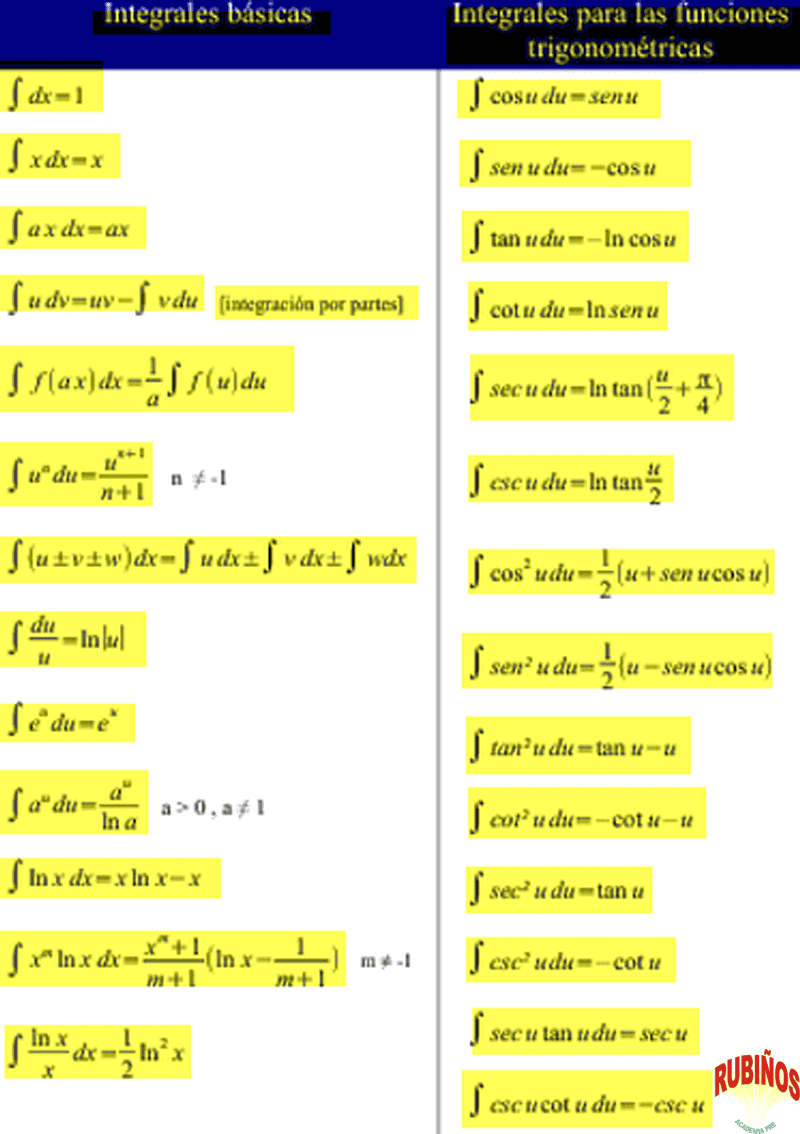 Integrales básicas
∫ dx = 1
∫ x dx = x
∫ a x dx = ax
∫ u dv = uv − ∫ v du [integración por partes]
∫ f(ax) dx = 1/a ∫ f(u) du
∫ uⁿ du = uⁿ⁺¹/(n+1) n ≠ -1
∫ (u ± v ± w) dx = ∫ u dx ± ∫ v dx ± ∫ wdx
∫ du/u = ln|u|
∫ eᵘ du = eᵘ
∫ aᵘ du = aᵘ/ln a a > 0 , a ≠ 1
∫ ln x dx = x ln x − x
∫ xᵐ ln x dx = (xᵐ + 1)/(m+1) (ln x − 1/(m+1)) m ≠ -1
∫ ln x/x dx = 1/2 ln² x
Integrales para las funciones
trigonométricas
∫ cos u du = sen u
∫ sen u du = −cos u
∫ tan u du = −ln cos u
∫ cot u du = ln sen u
∫ sec u du = ln tan (u/2 + π/4)
∫ csc u du = ln tan u/2
∫ cos² u du = 1/2 (u + sen u cos u)
∫ sen² u du = 1/2 (u − sen u cos u)
∫ tan² u du = tan u − u
∫ cot² u du = −cot u − u
∫ sec² u du = tan u
∫ csc² u du = −cot u
∫ sec u tan u du = sec u
∫ csc u cot u du = −csc u
RUBIÑOS
ACADEMIA PRE